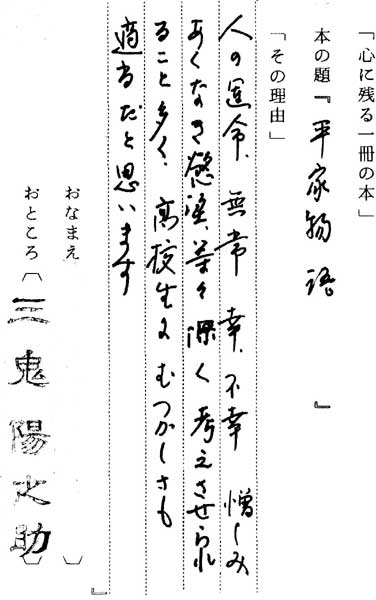 「心に残る一冊の本」
本の題『平家物語』
「その理由」
人の運命、無常 幸、不幸 憎しみ
あくなき慾望、等々 深く考えさせられ
ること多く、高校生にむつかしさも
適当だと思います
おなまえ
おところ〔三鬼陽之助〕
』